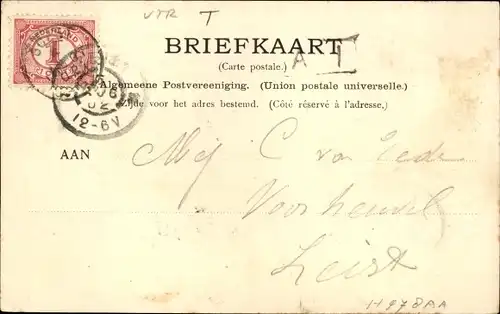 VTR T
BRIEFKAART
(Carte postale.)
A T
Algemeene Postvereeniging. (Union postale universelle.)
Zijde voor het adres bestemd. (Côté réservé à l'adresse.)
12-6V
AAN
Mej C van Eeden
Voorheuvel
Zeist